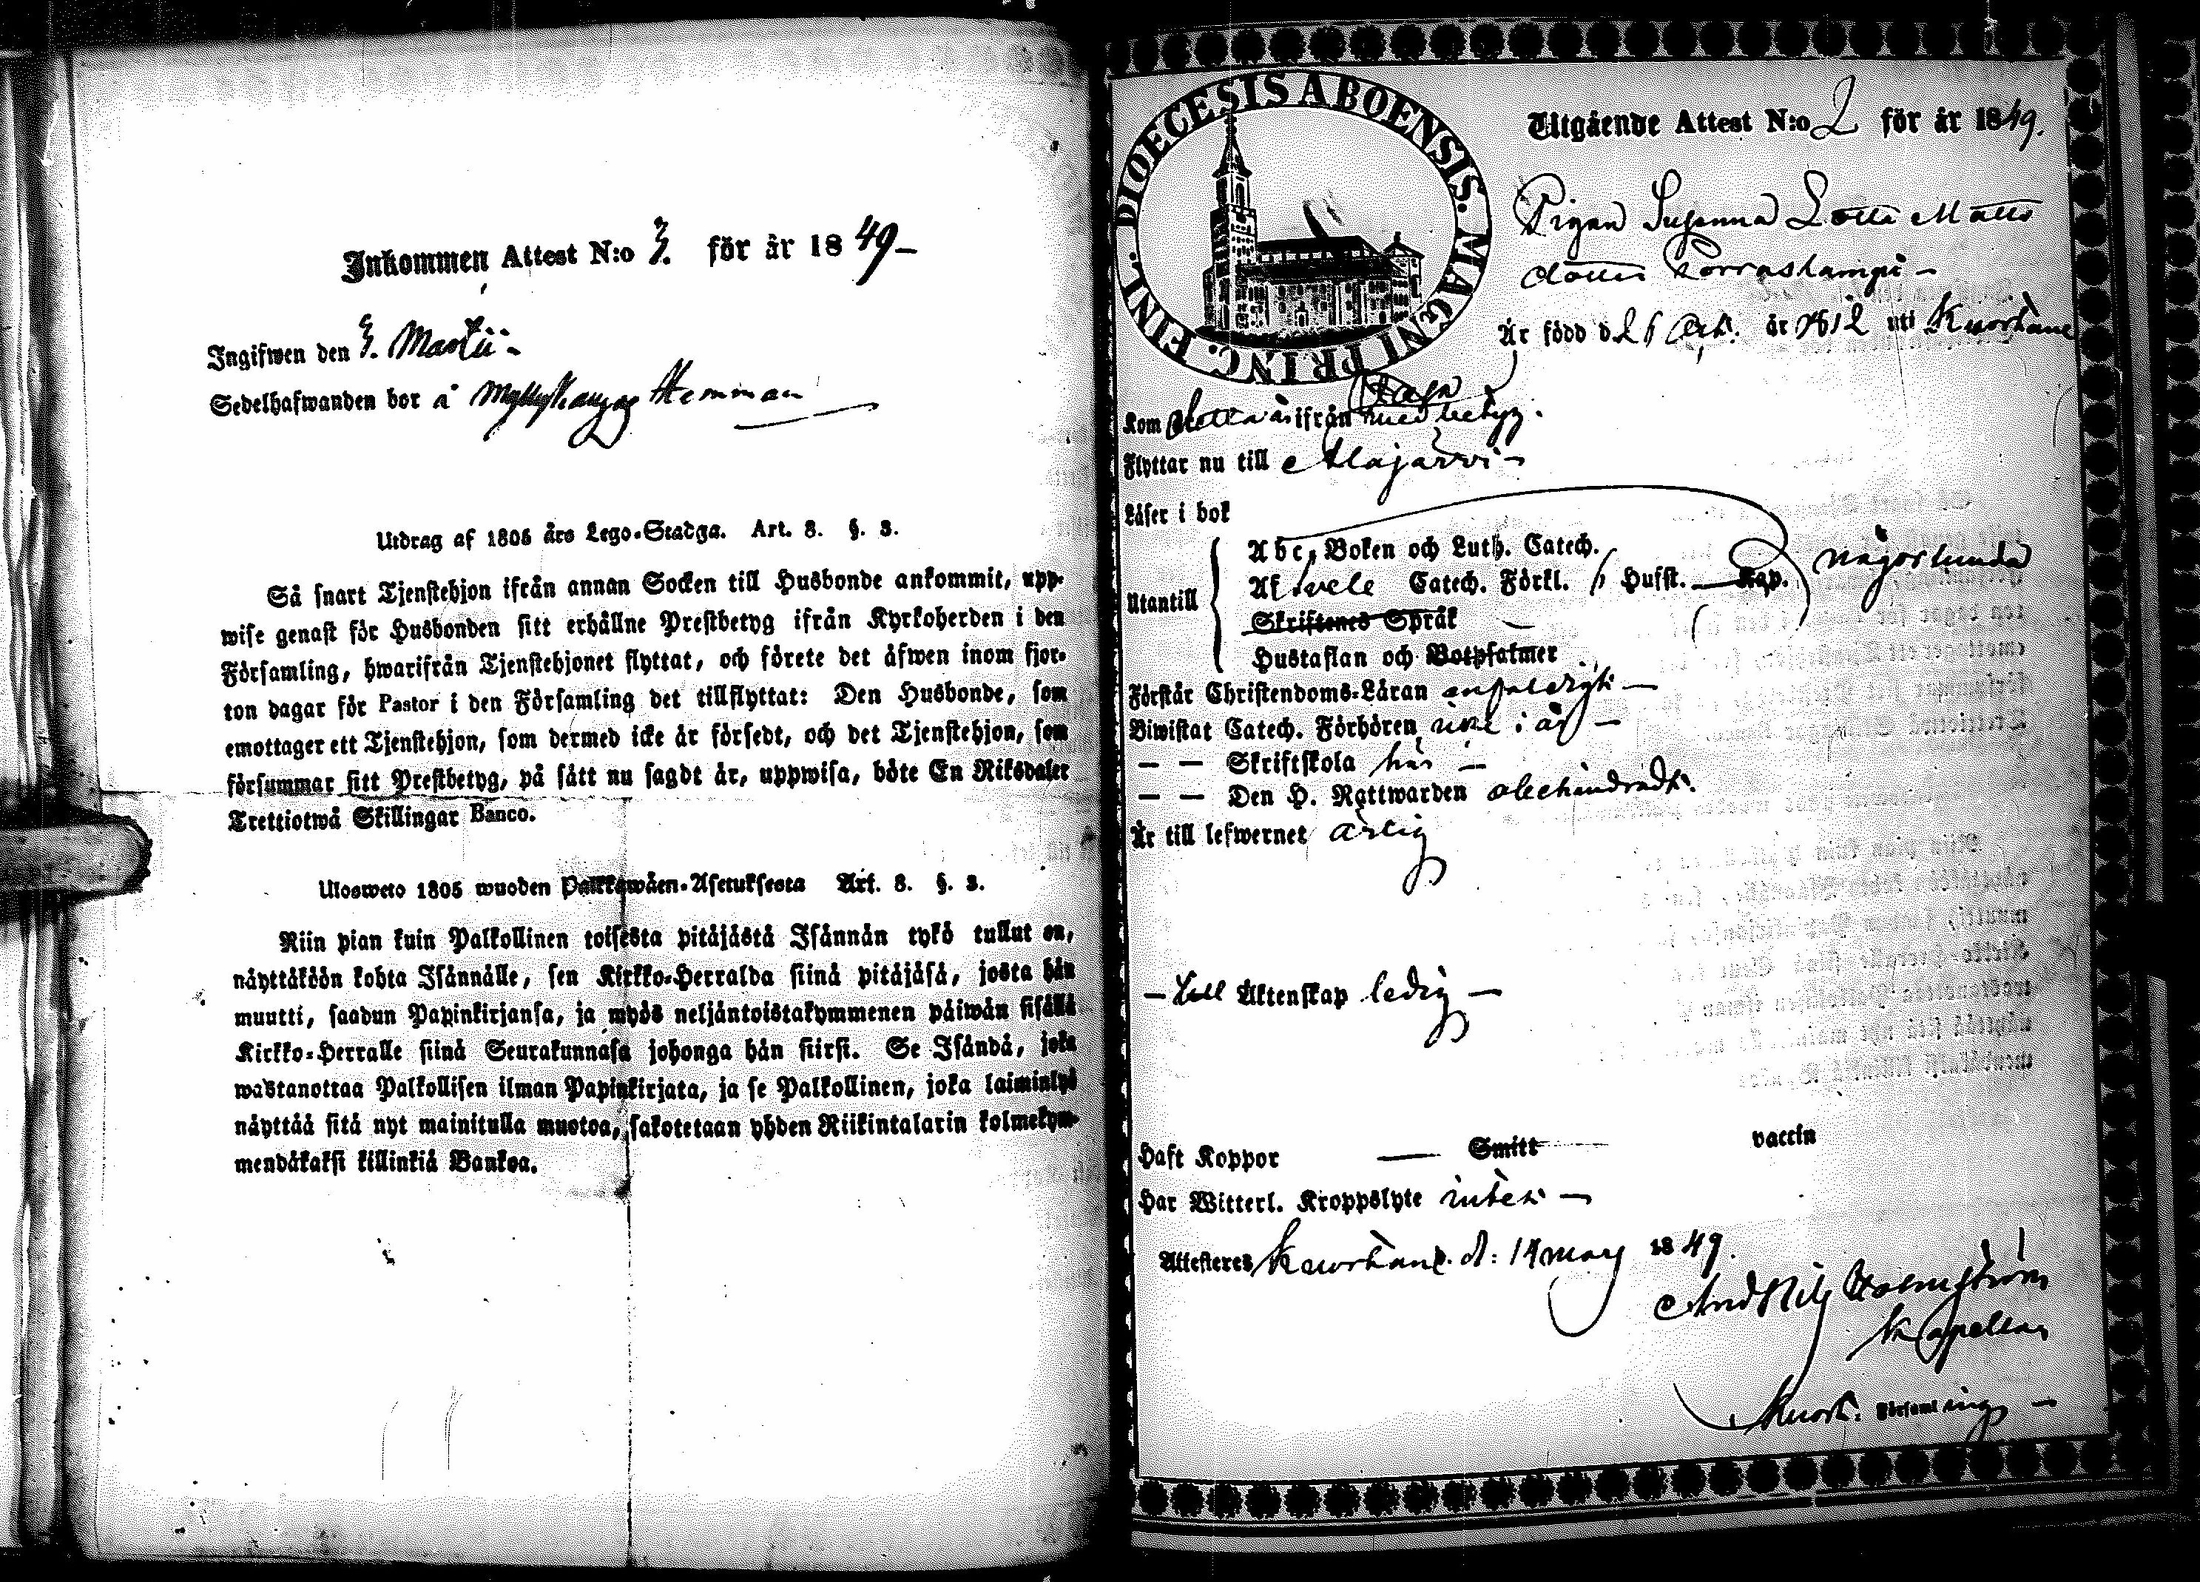 Inkommen Attest N:o 3. för år 1849
Ingifwen den 3. Martii
Sedelhafwanden bor å Hemman
Utdrag af 1805 års Lego-Stadga. Art. 8. §. 3.
Så snart Tjenstehjon ifrån annan Socken till Husbonde ankommit, upp-
wise genast för Husbonden sitt erhållne Prestbetyg ifrån Kyrkoherden i den
Församling, hwarifrån Tjenstehjonet flyttat, och förete det åfwen inom fjor-
ton dagar för Pastor i den Församling det tillflyttat: Den Husbonde, som
emottager ett Tjenstehjon, som dermed icke är försedt, och det Tjenstehjon, som
försummar sitt Prestbetyg, på sått nu sagdt är, uppwisa, böte En Riksdaler
Trettiotwå Skillingar Banco.
Uloswete 1805 wuoden Palkkawäen-Asetuksesta Art. 8. §. 3.
Niin pian kuin Palkollinen toisesta pitäjästä Isännän tykö tullut on,
näyttäköön kohta Isännälle, sen Kirkko-Herralda siinä pitäjäsä, josta hän
muutti, saadun Papinkirjansa, ja myös neljäntoistakymmenen päiwän sisällä
Kirkko-Herralle siinä Seurakunnasa johonga hän siirsi. Se Isändä, joka
wastanottaa Palkollisen ilman Papinkirjata, ja se Palkollinen, joka laiminlyö
näyttää sitä nyt mainitulla muotoa, sakotetaan yhden Riikintalarin kolmekym-
mendäkaksi killinkiä Bankoa.
DIOECESIS ABOENSIS. MAGNI PRINC. FINL.
Utgående Attest N:o 2 för år 1849.
Pigan Susanna Lotta Matts
dotter
Är född d. år 1812 uti Kuortane
Kom ifrån med betyg.
Flyttar nu till Alajärvi
Läser i bok
Abc, Boken och Luth. Catech.
Utantill
Af Catech. Förkl. Husst. Kap. någorlunda
Skriftenes Språk
Hustaflan och Botpsalmer
Förstår Christendoms-Läran enfaldigt
Biwistat Catech. Förhören icke i år
— — Skriftskola här
— — Den H. Nattwarden obehindradt.
Är till lefwernet ärlig
— till Äktenskap ledig —
Haft Koppor — Smitt vaccin
Har Witterl. Kroppslyte intet —
Attesteres Kuortane. d: 14 Mars 1849.
And Nils Holmström
Kapellan
Kuort. Församling